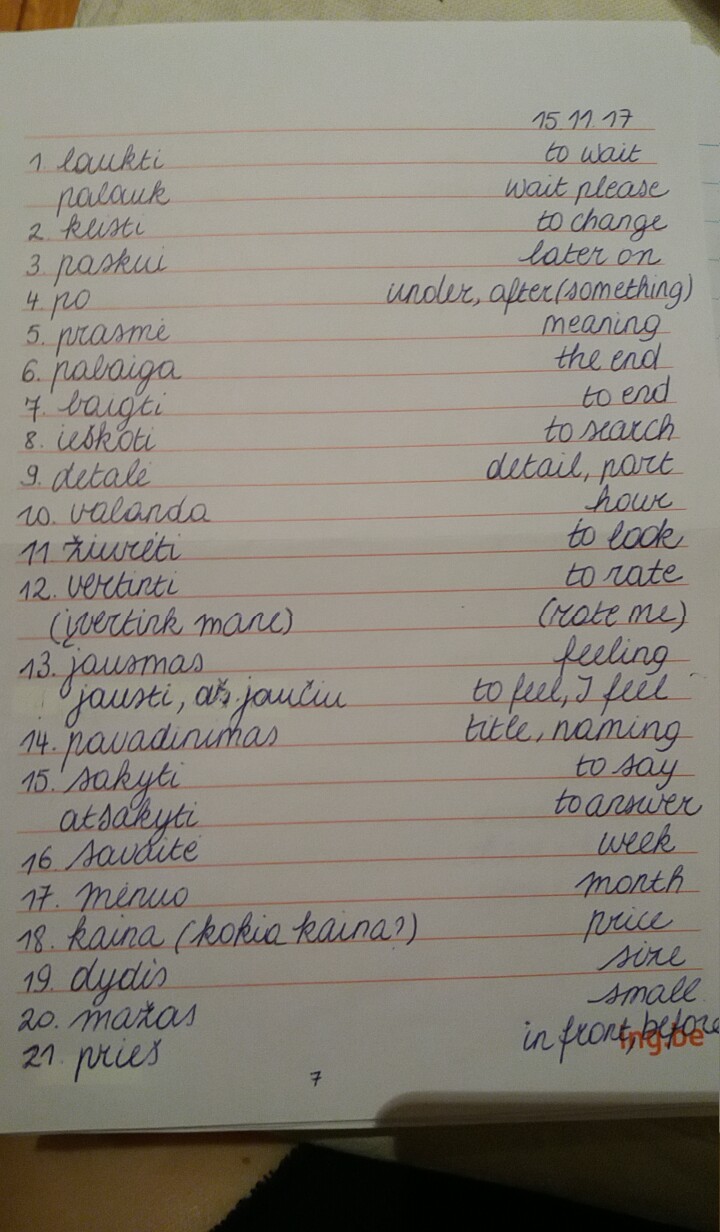 15.11.17
1. laukti to wait
palauk wait please
2. keisti to change
3. paskui later on
4. po under, after (something)
5. prasmė meaning
6. pabaiga the end
7. baigti to end
8. ieškoti to search
9. detalė detail, part
10. valanda hour
11 žiurėti to look
12. vertinti to rate
(įvertink mane) (rate me)
13. jausmas feeling
jausti, aš jaučiu to feel, I feel
14. pavadinimas title, naming
15. sakyti to say
atsakyti to answer
16 savaitė week
17. mėnuo month
18. kaina (kokia kaina?) price
19. dydis size
20. mažas small
21. prieš in front, before
ing.be
7